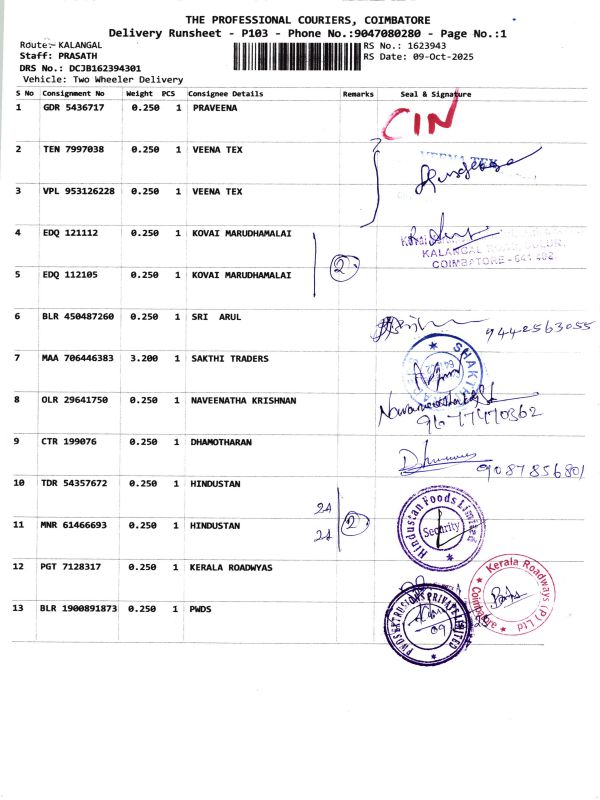 THE PROFESSIONAL COURIERS, COIMBATORE
Delivery Runsheet - P103 - Phone No.:9047080280 - Page No.:1
Route:- KALANGAL RS No.: 1623943
Staff: PRASATH RS Date: 09-Oct-2025
DRS No.: DCJB162394301
Vehicle: Two Wheeler Delivery
S No Consignment No Weight PCS Consignee Details Remarks Seal & Signature
1 GDR 5436717 0.250 1 PRAVEENA CIN
2 TEN 7997038 0.250 1 VEENA TEX VEENA TEX
3 VPL 953126228 0.250 1 VEENA TEX
4 EDQ 121112 0.250 1 KOVAI MARUDHAMALAI
KALANGAL ROAD, SULUR,
COIMBATORE - 641 402
2
5 EDQ 112105 0.250 1 KOVAI MARUDHAMALAI
6 BLR 450487260 0.250 1 SRI ARUL 9442563055
7 MAA 706446383 3.200 1 SAKTHI TRADERS SHAKTHI
8 OLR 29641750 0.250 1 NAVEENATHA KRISHNAN
9677470362
9 CTR 199076 0.250 1 DHAMOTHARAN 9087856801
10 TDR 54357672 0.250 1 HINDUSTAN
Hindustan Foods Limited
Security
2
11 MNR 61466693 0.250 1 HINDUSTAN
12 PGT 7128317 0.250 1 KERALA ROADWYAS
Kerala Roadways (P) Ltd
Coimbatore
13 BLR 1900891873 0.250 1 PWDS
PRIVATE LIMITED
09